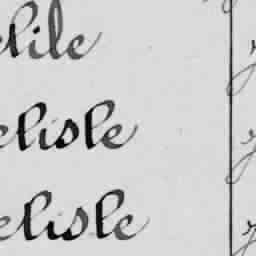 elile
elisle
elisle